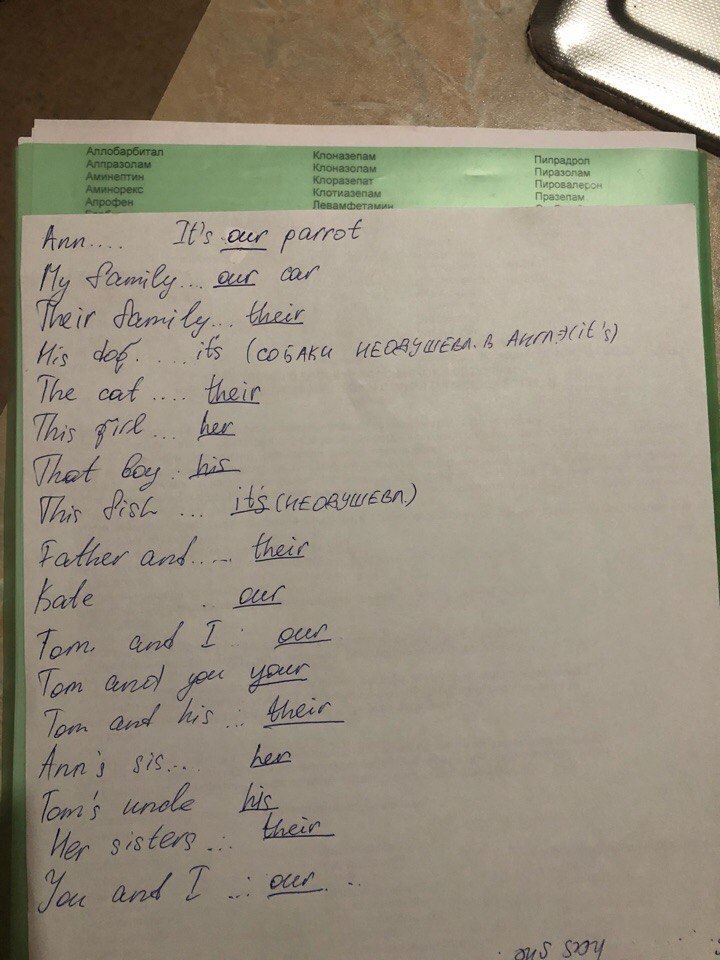 Аллобарбитал
Алпразолам
Аминептин
Аминорекс
Апрофен
Клоназепам
Клоназолам
Клоразепат
Клотиазепам
Левамфетамин
Пипрадрол
Пиразолам
Пировалерон
Празепам
Ann.... It's our parrot
My family... our car
Their family... their
His dog..... its (СОБАКИ НЕОДУШЕВЛ. В АНГЛЭ (it's)
The cat .... their
This girl ... her
That boy . his
This fish ... it's (НЕОДУШЕВЛ)
Father and..... their
Kate .. our
Tom. and I : our
Tom and you your
Tom and his ... their
Ann's sis.... her
Tom's uncle his
Her sisters ... their
You and I ... our ..